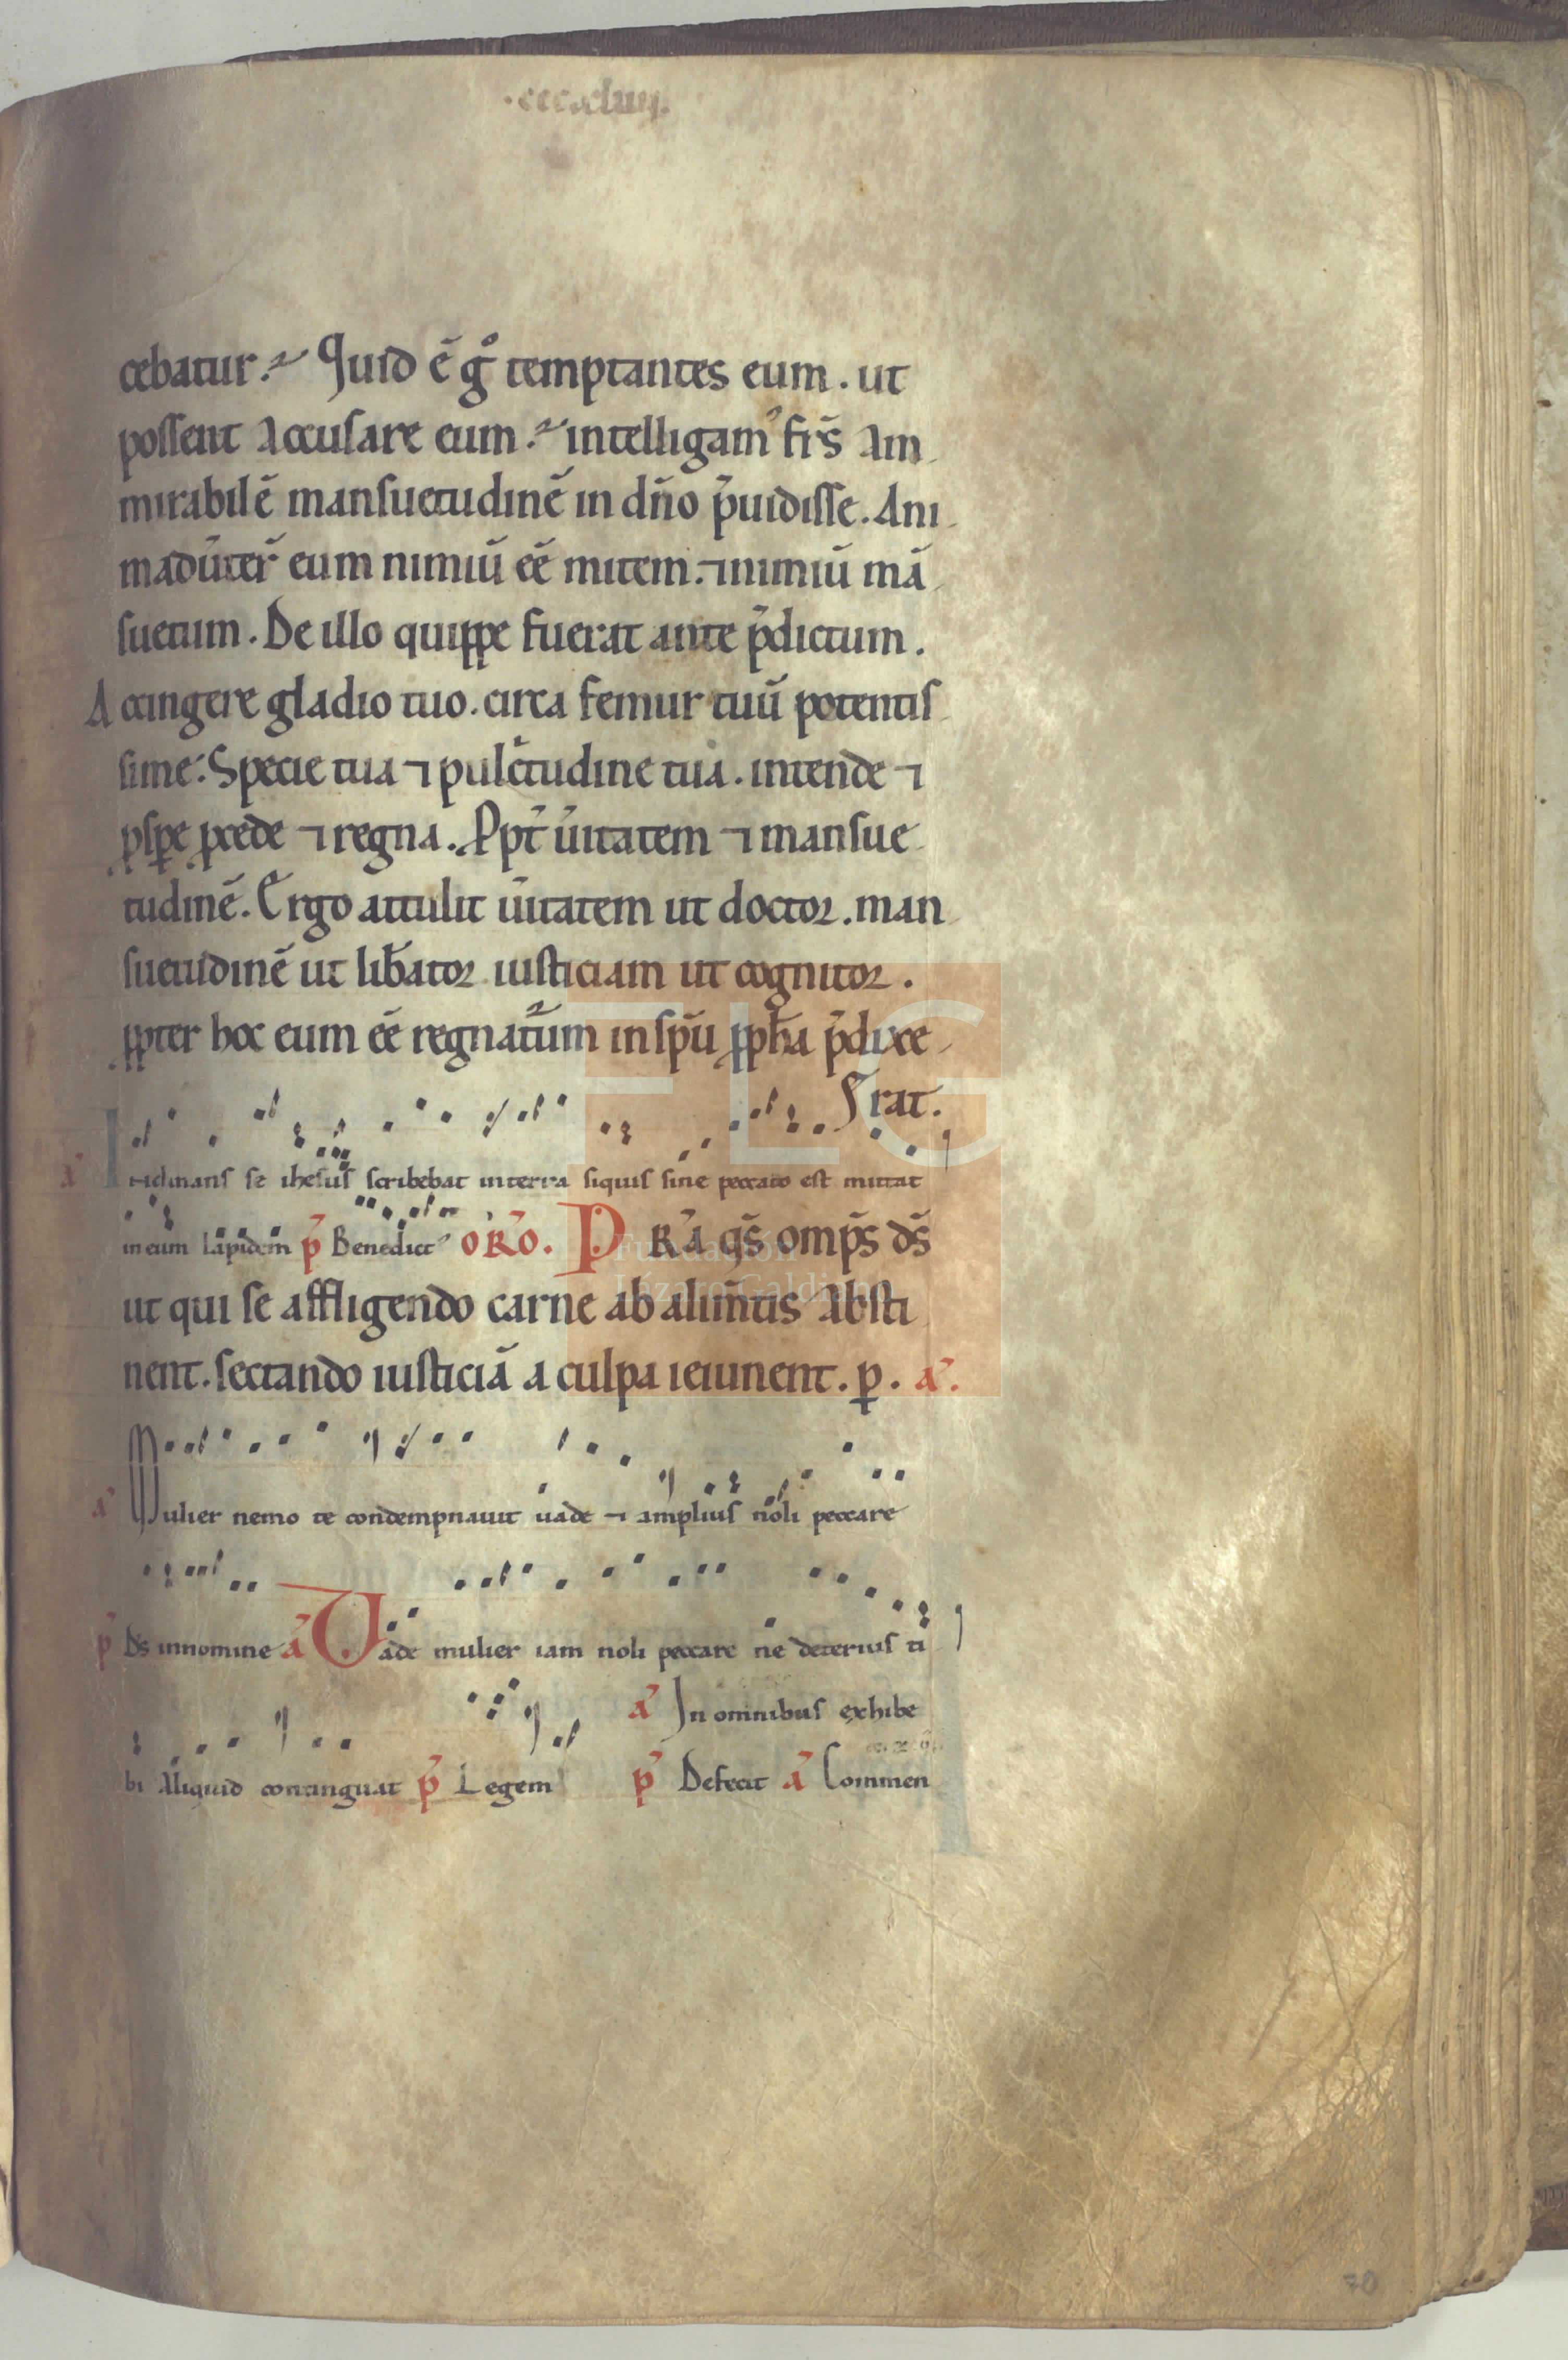 .cccxliiij.
cebatur. Quid ē gͦ temptantes eum. ut
possent accusare eum. intelligamꝰ fr̄s am
mirabilē mansuetudinē in dn̄o p̄uidisse. Ani
madūter̄ eum nimiū eē mitem. ⁊ nimiū mā
suetum. De illo quippe fuerat ante p̄dictum.
Accingere gladio tuo. circa femur tuū potentis
sime. Specie tua ⁊ pulc̄tudine tua. intende ⁊
ꝓsꝑe ꝓcede ⁊ regna. Ꝓpt̄ ūitatem ⁊ mansue
tudinē. Ergo attulit ūitatem ut doctor. man
suetudinē ut lib̄ator iusticiam ut cognitor.
ꝓpter hoc eum eē regnatᷣum in sp̄u ꝓph̄a p̄dixe
rat.
a᷎ Inclinans se ihesus scribebat in terra siquis sine peccato est mittat
in eum lapidem p̄ Benedict᷎ ORO. PRA qs̄ omp̄s ds̄
ut qui se affligendo carne ab alim̄tis absti
nent. sectando iusticiā a culpa ieiunent. ꝑ. a᷎.
a᷎ Mulier nemo te condempnauit uade ⁊ amplius noli peccare
p̄ Ds̄ in nomine a᷎ Vade mulier iam noli peccare ne deterius ti
a᷎ In omnibus exhibe
bi aliquid contingat p̄ Legem p̄ Defecit a᷎ Commen
70
FLG
Fundación
Lázaro Galdiano